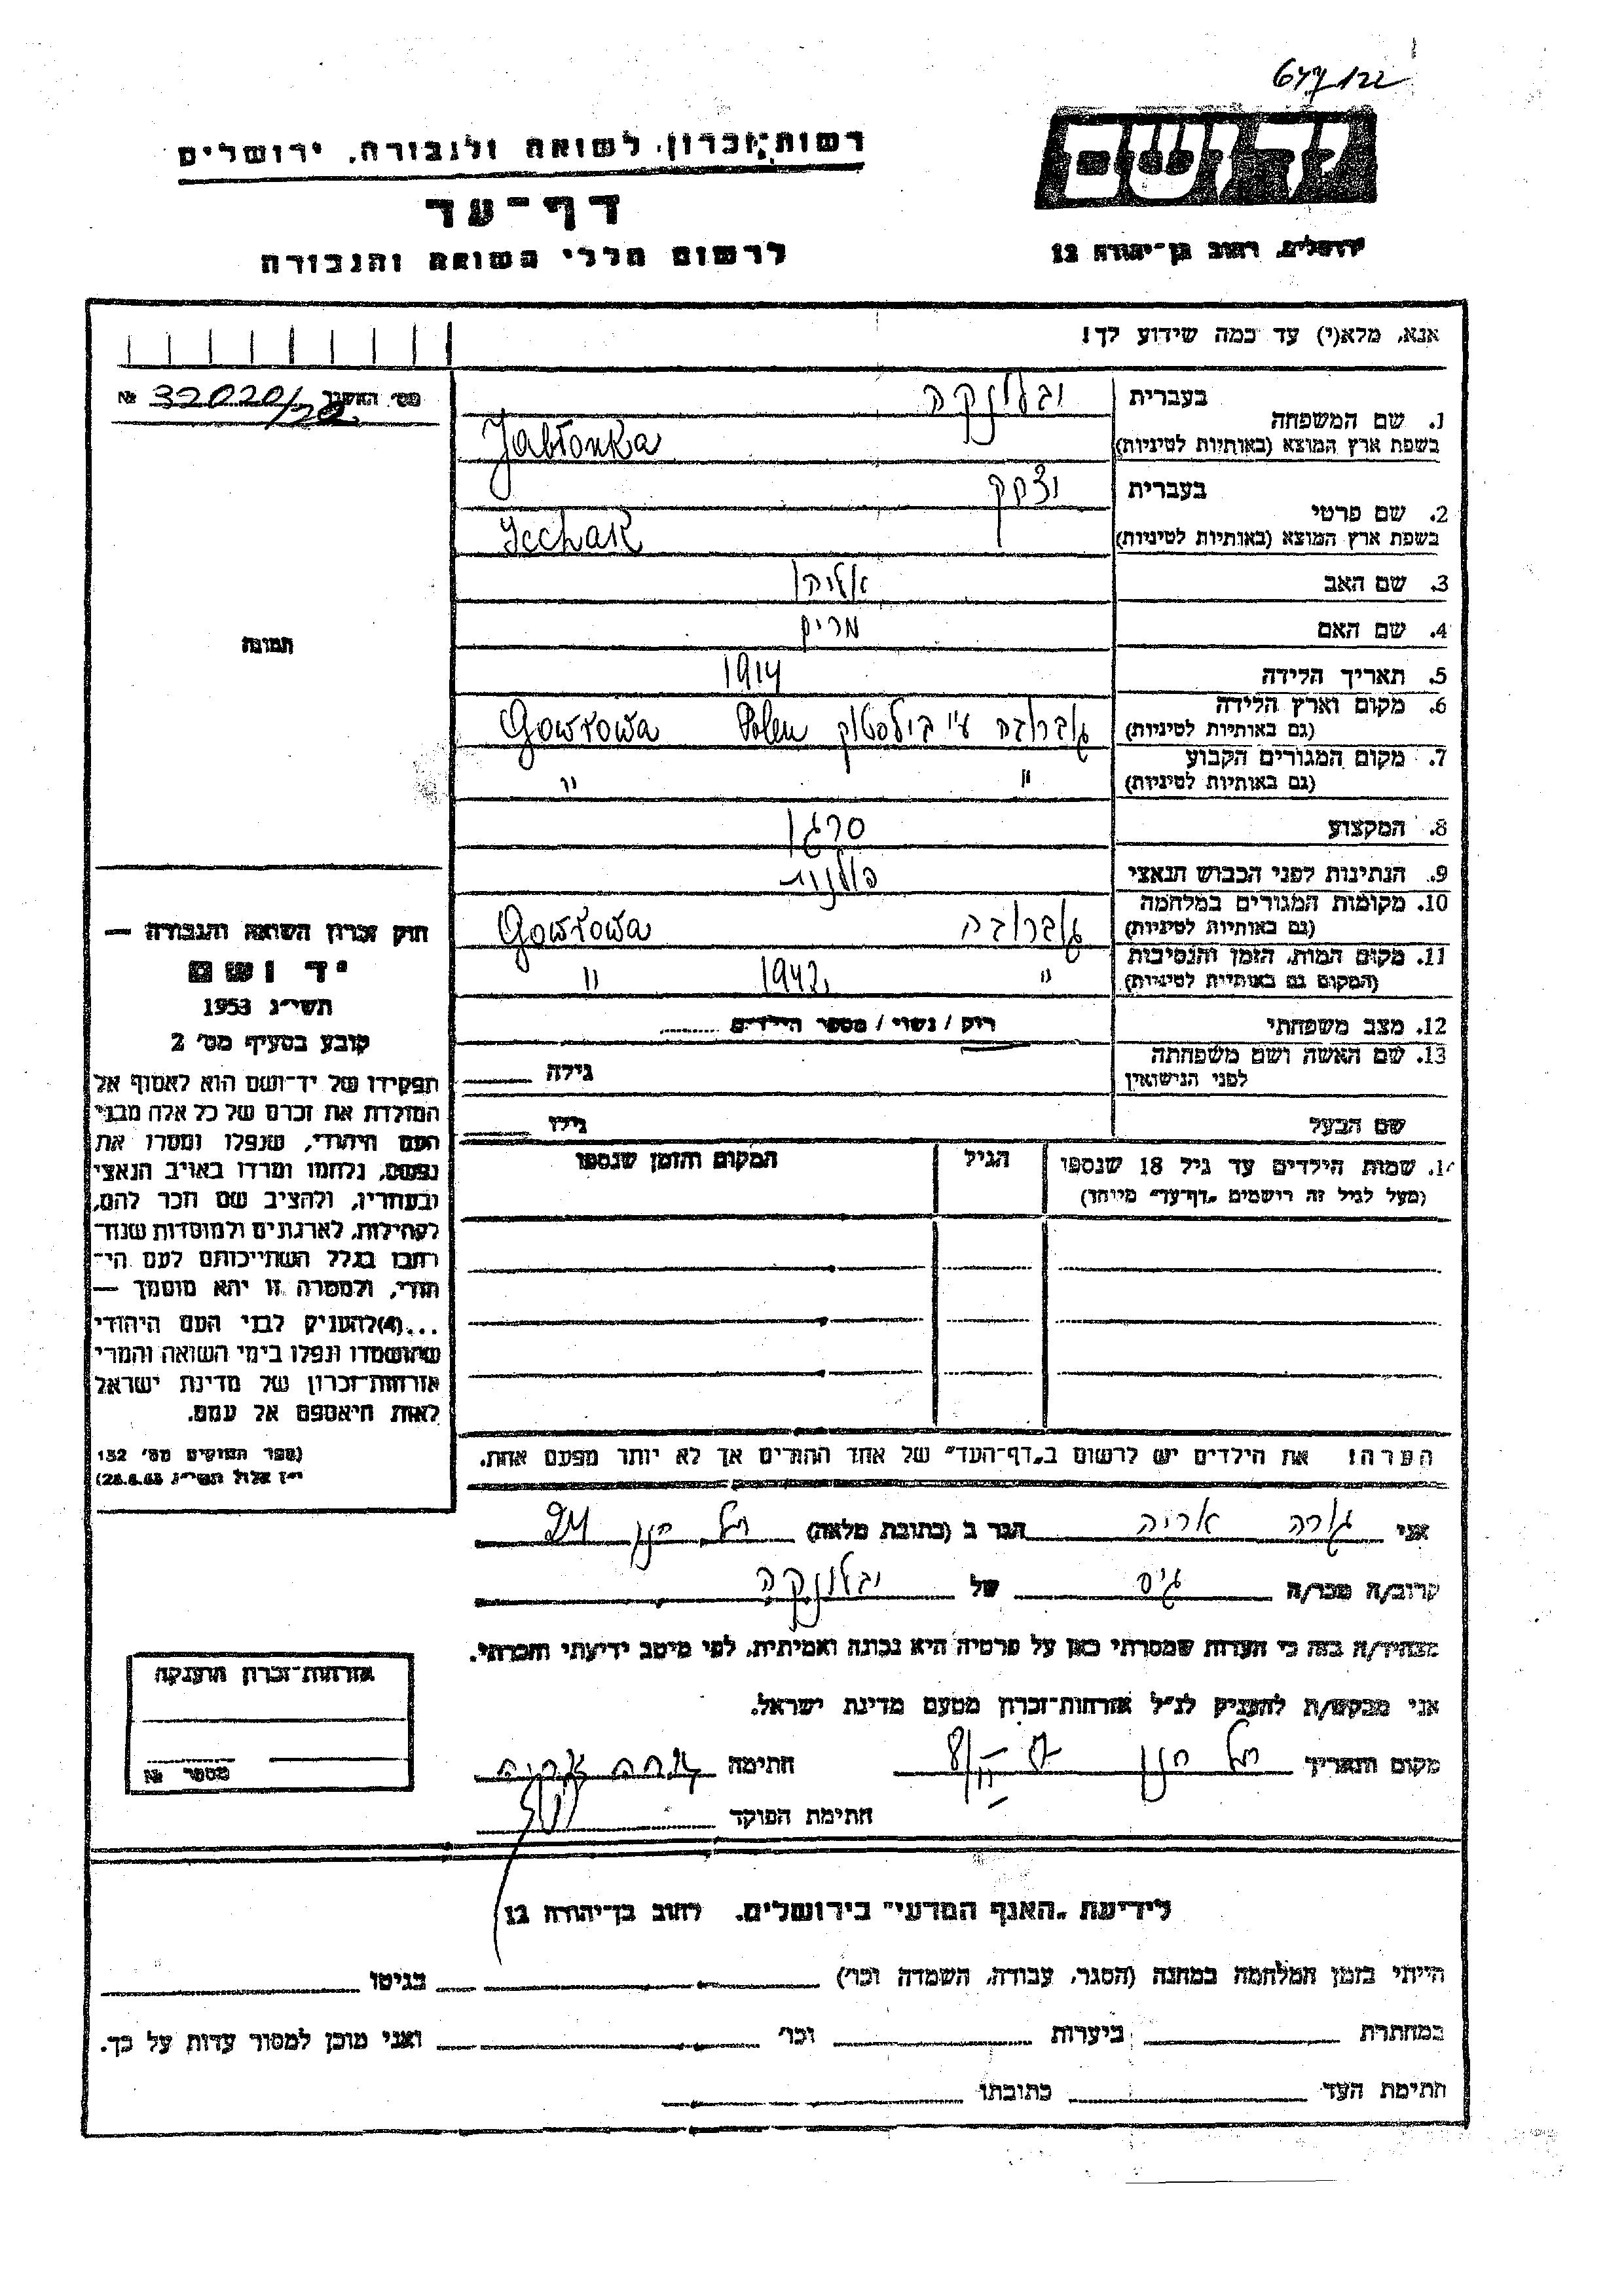 677/122
יד ושם
רשות זכרון לשואה ולגבורה, ירושלים
דף-עד
לרשום חללי השואה והגבורה
ירושלים, רחוב בן-יהודה 12
אנא, מלא(י) עד כמה שידוע לך!
מס׳ האשנב № 32020/20
1. שם המשפחה בעברית יבלונקה
בשפת ארץ המוצא (באותיות לטיניות) Jabłonka
2. שם פרטי בעברית יצחק
בשפת ארץ המוצא (באותיות לטיניות) Icchak
3. שם האב אליהו
4. שם האם מרים
5. תאריך הלידה 1914
6. מקום וארץ הלידה (גם באותיות לטיניות) גוברובה ע״י בילסטוק Polen Goworowa
7. מקום המגורים הקבוע (גם באותיות לטיניות) " "
8. המקצוע
9. הנתינות לפני הכבוש הנאצי פולנית
10. מקומות המגורים במלחמה (גם באותיות לטיניות) גוברובה Goworowa
11. מקום המות, הזמן והנסיבות (המקום גם באותיות לטיניות) " 1942 "
12. מצב משפחתי רווק / נשוי / מספר הילדים
13. שם האשה ושם משפחתה לפני הנישואין גילה
שם הבעל גילו
14. שמות הילדים עד גיל 18 שנספו הגיל המקום והזמן שנספו
(מעל לגיל זה רושמים „דף-עד״ מיוחד)
הערה! את הילדים יש לרשום ב„דף-העד״ של אחד ההורים אך לא יותר מפעם אחת.
תמונה
חוק זכרון השואה והגבורה —
יד ושם
תשי״ג 1953
קובע בסעיף מס׳ 2
תפקידו של יד-ושם הוא לאסוף אל
המולדת את זכרם של כל אלה מבני
העם היהודי, שנפלו ומסרו את
נפשם, נלחמו ומרדו באויב הנאצי
ובעוזריו, ולהציב שם וזכר להם,
לקהילות, לארגונים ולמוסדות שנח-
רחבו בגלל השתייכותם לעם הי-
הודי, ולמטרה זו יהא מוסמך —
...(4)להעניק לבני העם היהודי
שהושמדו ונפלו בימי השואה והמרי
אזרחות-זכרון של מדינת ישראל
לאות היאספם אל עמם.
(ספר החוקים מס׳ 132
י״ז אלול תשי״ג 28.8.53)
אני גורה אריה הגר ב (כתובת מלאה) תל חנן 24
קרוב/ה מכר/ה גיס של יבלונקה
מצהיר/ה בזה כי העדות שמסרתי כאן על פרטיה היא נכונה ואמיתית, לפי מיטב ידיעתי והכרתי.
אני מבקש/ת להעניק לנ״ל אזרחות-זכרון מטעם מדינת ישראל.
מקום ותאריך תל חנן חתימה גורה אריה
חתימת הפוקד
אזרחות-זכרון הוענקה
מספר №
לידיעת „האגף המדעי״ בירושלים, רחוב בן-יהודה 12
הייתי בזמן המלחמה במחנה (הסגר, עבודה, השמדה וכו׳) בגיטו
במחתרת ביערות וכו׳ ואני מוכן למסור עדות על כך.
חתימת העד כתובתו